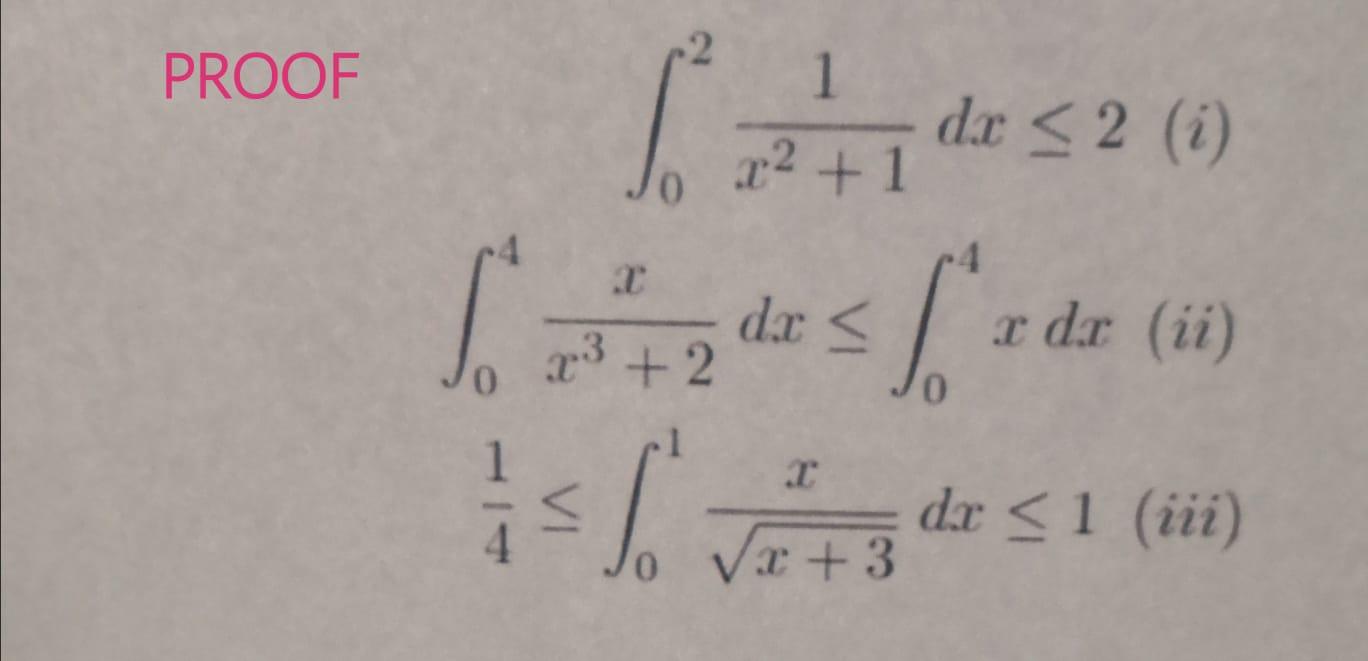 PROOF
∫₀² 1/(x² + 1) dx ≤ 2 (i)
∫₀⁴ x/(x³ + 2) dx ≤ ∫₀⁴ x dx (ii)
1/4 ≤ ∫₀¹ x/√(x + 3) dx ≤ 1 (iii)